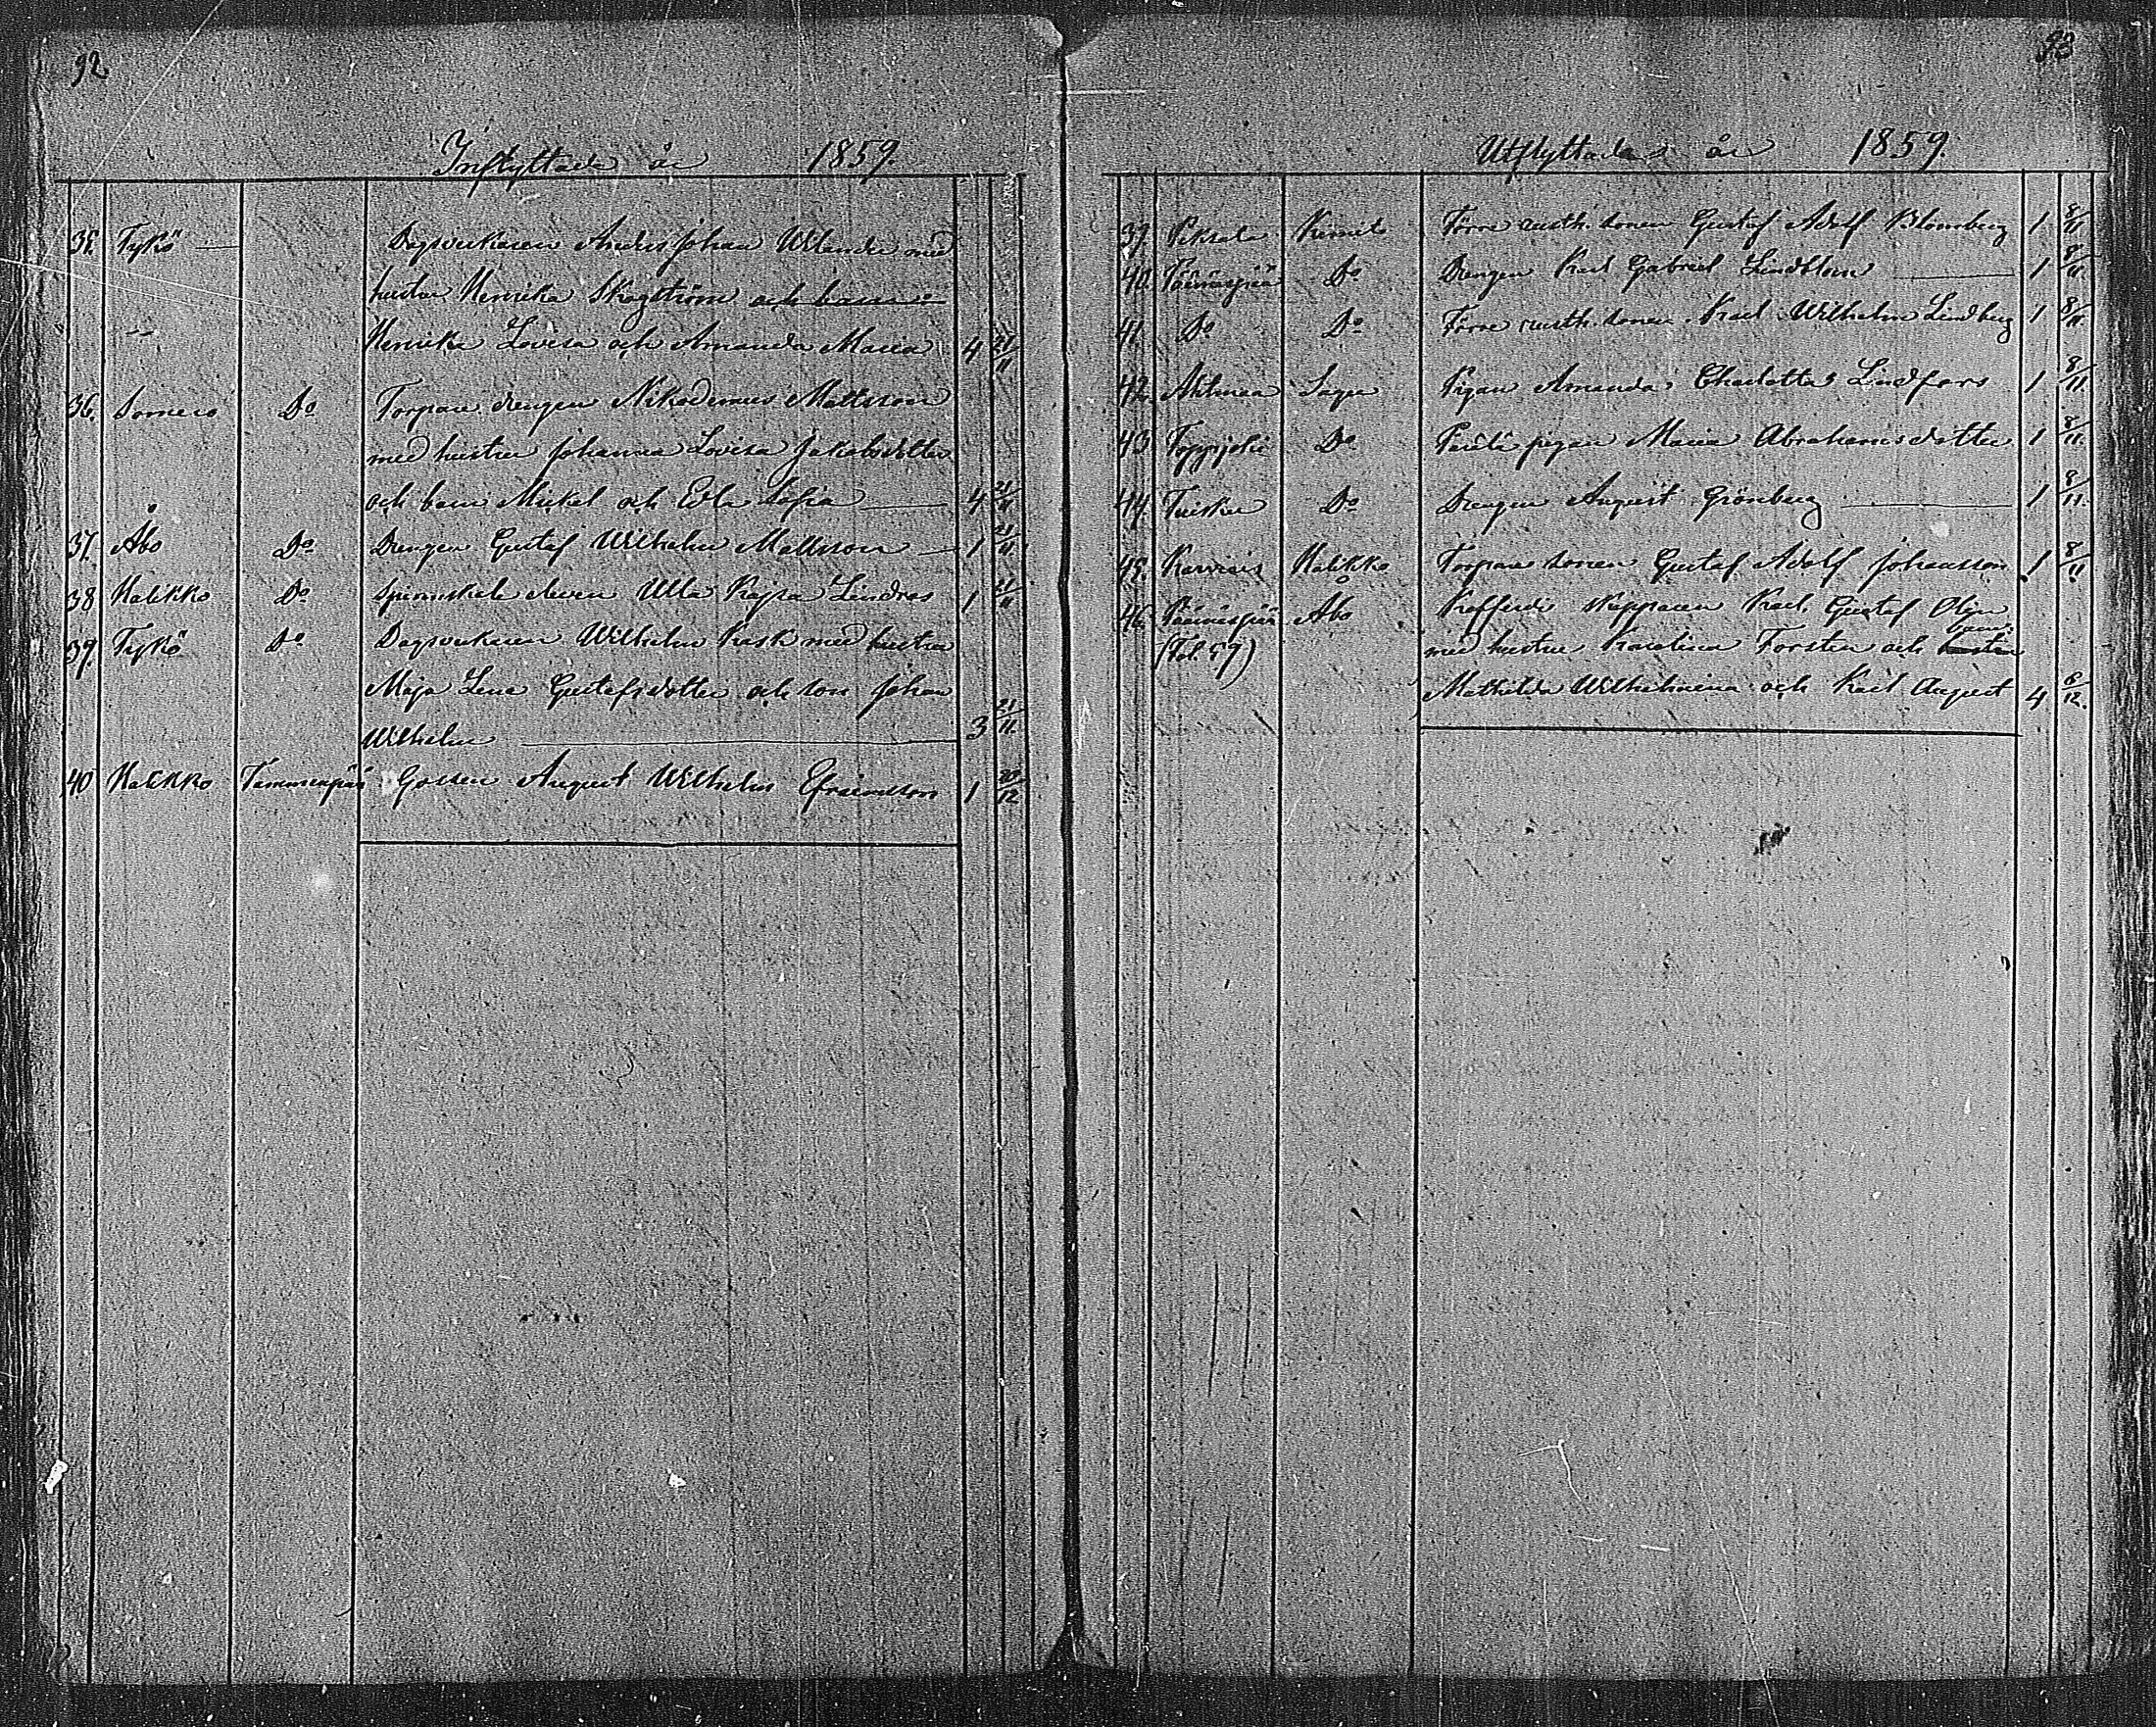 92
Inflyttade år 1859.
35. Tykö — Dagsverkaren Anders Johan Welander med
hustru Henrika Skogström och barn:
Henrika Lovisa och Amanda Maria 4 21/11
36. Somero Do Torpare drengen Nikodemus Mattsson
med hustru Johanna Lovisa Jakobsdotter
och barn Mickel och Edla Sofia — 4 21/11
37. Åbo Do Drengen Gustaf Wilhelm Mattsson — 1 21/11
38 Halikko Do Spinnskole eleven Ulla Kajsa Lindros 1 21/11
39. Tykö Do Dagsverkaren Wilhelm Rask med hustru
Maja Lena Gustafsdotter och son Johan
Wilhelm — 3 21/11.
40 Halikko Tammenpää Gossen August Wilhelm Efraimsson 1 20/12
93
Utflyttade år 1859.
39. Kimito Förre rusth. sonen Gustaf Adolf Blomberg 1 8/11
40. Do Drengen Karl Gabriel Lindblom — 1 8/11
41. Do Do Förre rusth. sonen Karl Wilhelm Lindberg 1 8/11
42. Sagu Pigan Amanda Charlotta Lindfors 1 8/11.
43. Toppjoki Do pigan Maria Abrahamsdotter 1 8/11.
44. Tuisku Do Drengen August Grönberg — 1 8/11.
45. Karviais Halikko Torpare sonen Gustaf Adolf Johansson 1 8/11
46. Päärnäspää Åbo Kofferdi skepparen Karl Gustaf
(Fol. 59) med hustru Karolina Forstén och barn:
Mathilda Wilhelmina och Karl August 4 6/12.